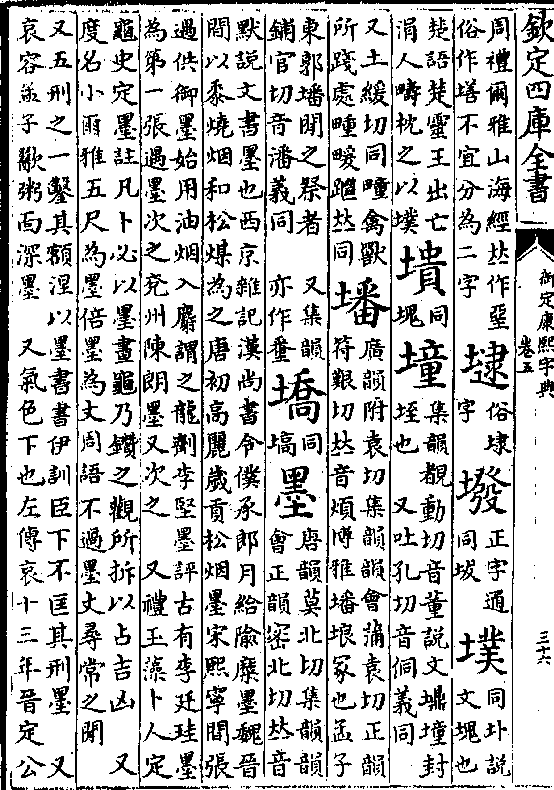 欽定四庫全書
御定康熙字典
卷五
三十六
周禮爾雅山海經𠀤作堊
俗作墡不宜分為二字
俗埭
字
墢
正字通
同坺
墣
同圤說
文塊也
楚語楚靈王出亡
涓人疇枕之以墣
墤
同
塊
墥
集韻覩動切音董說文𪏆墥封
垤也 又吐孔切音侗義同
又土緩切同疃禽獸
所踐處疃畽躖𠀤同
墦
廣韻附袁切集韻韻會蒲袁切正韻
符艱切𠀤音煩博雅墦埌冢也孟子
東郭墦閒之祭者 又集韻
鋪官切音潘義同 亦作
墧
同
塙
墨
唐韻莫北切集韻韻
會正韻密北切𠀤音
默說文書墨也西京雜記漢尚書令僕丞郎月給隃糜墨魏晉
閒以黍燒烟和松煤為之唐初高麗歲貢松烟墨宋熙寧閒張
過供御墨始用油烟入麝謂之龍劑李堅墨評古有李廷珪墨
為第一張過墨次之兗州陳朗墨又次之 又禮玉藻卜人定
龜史定墨註凡卜必以墨畫龜乃鑽之觀所拆以占吉凶 又
度名小爾雅五尺為墨倍墨為丈周語不過墨丈尋常之閒
又五刑之一鑿其額涅以墨書書伊訓臣下不匡其刑墨 又
哀容孟子歠粥面深墨 又氣色下也左傳哀十三年晉定公